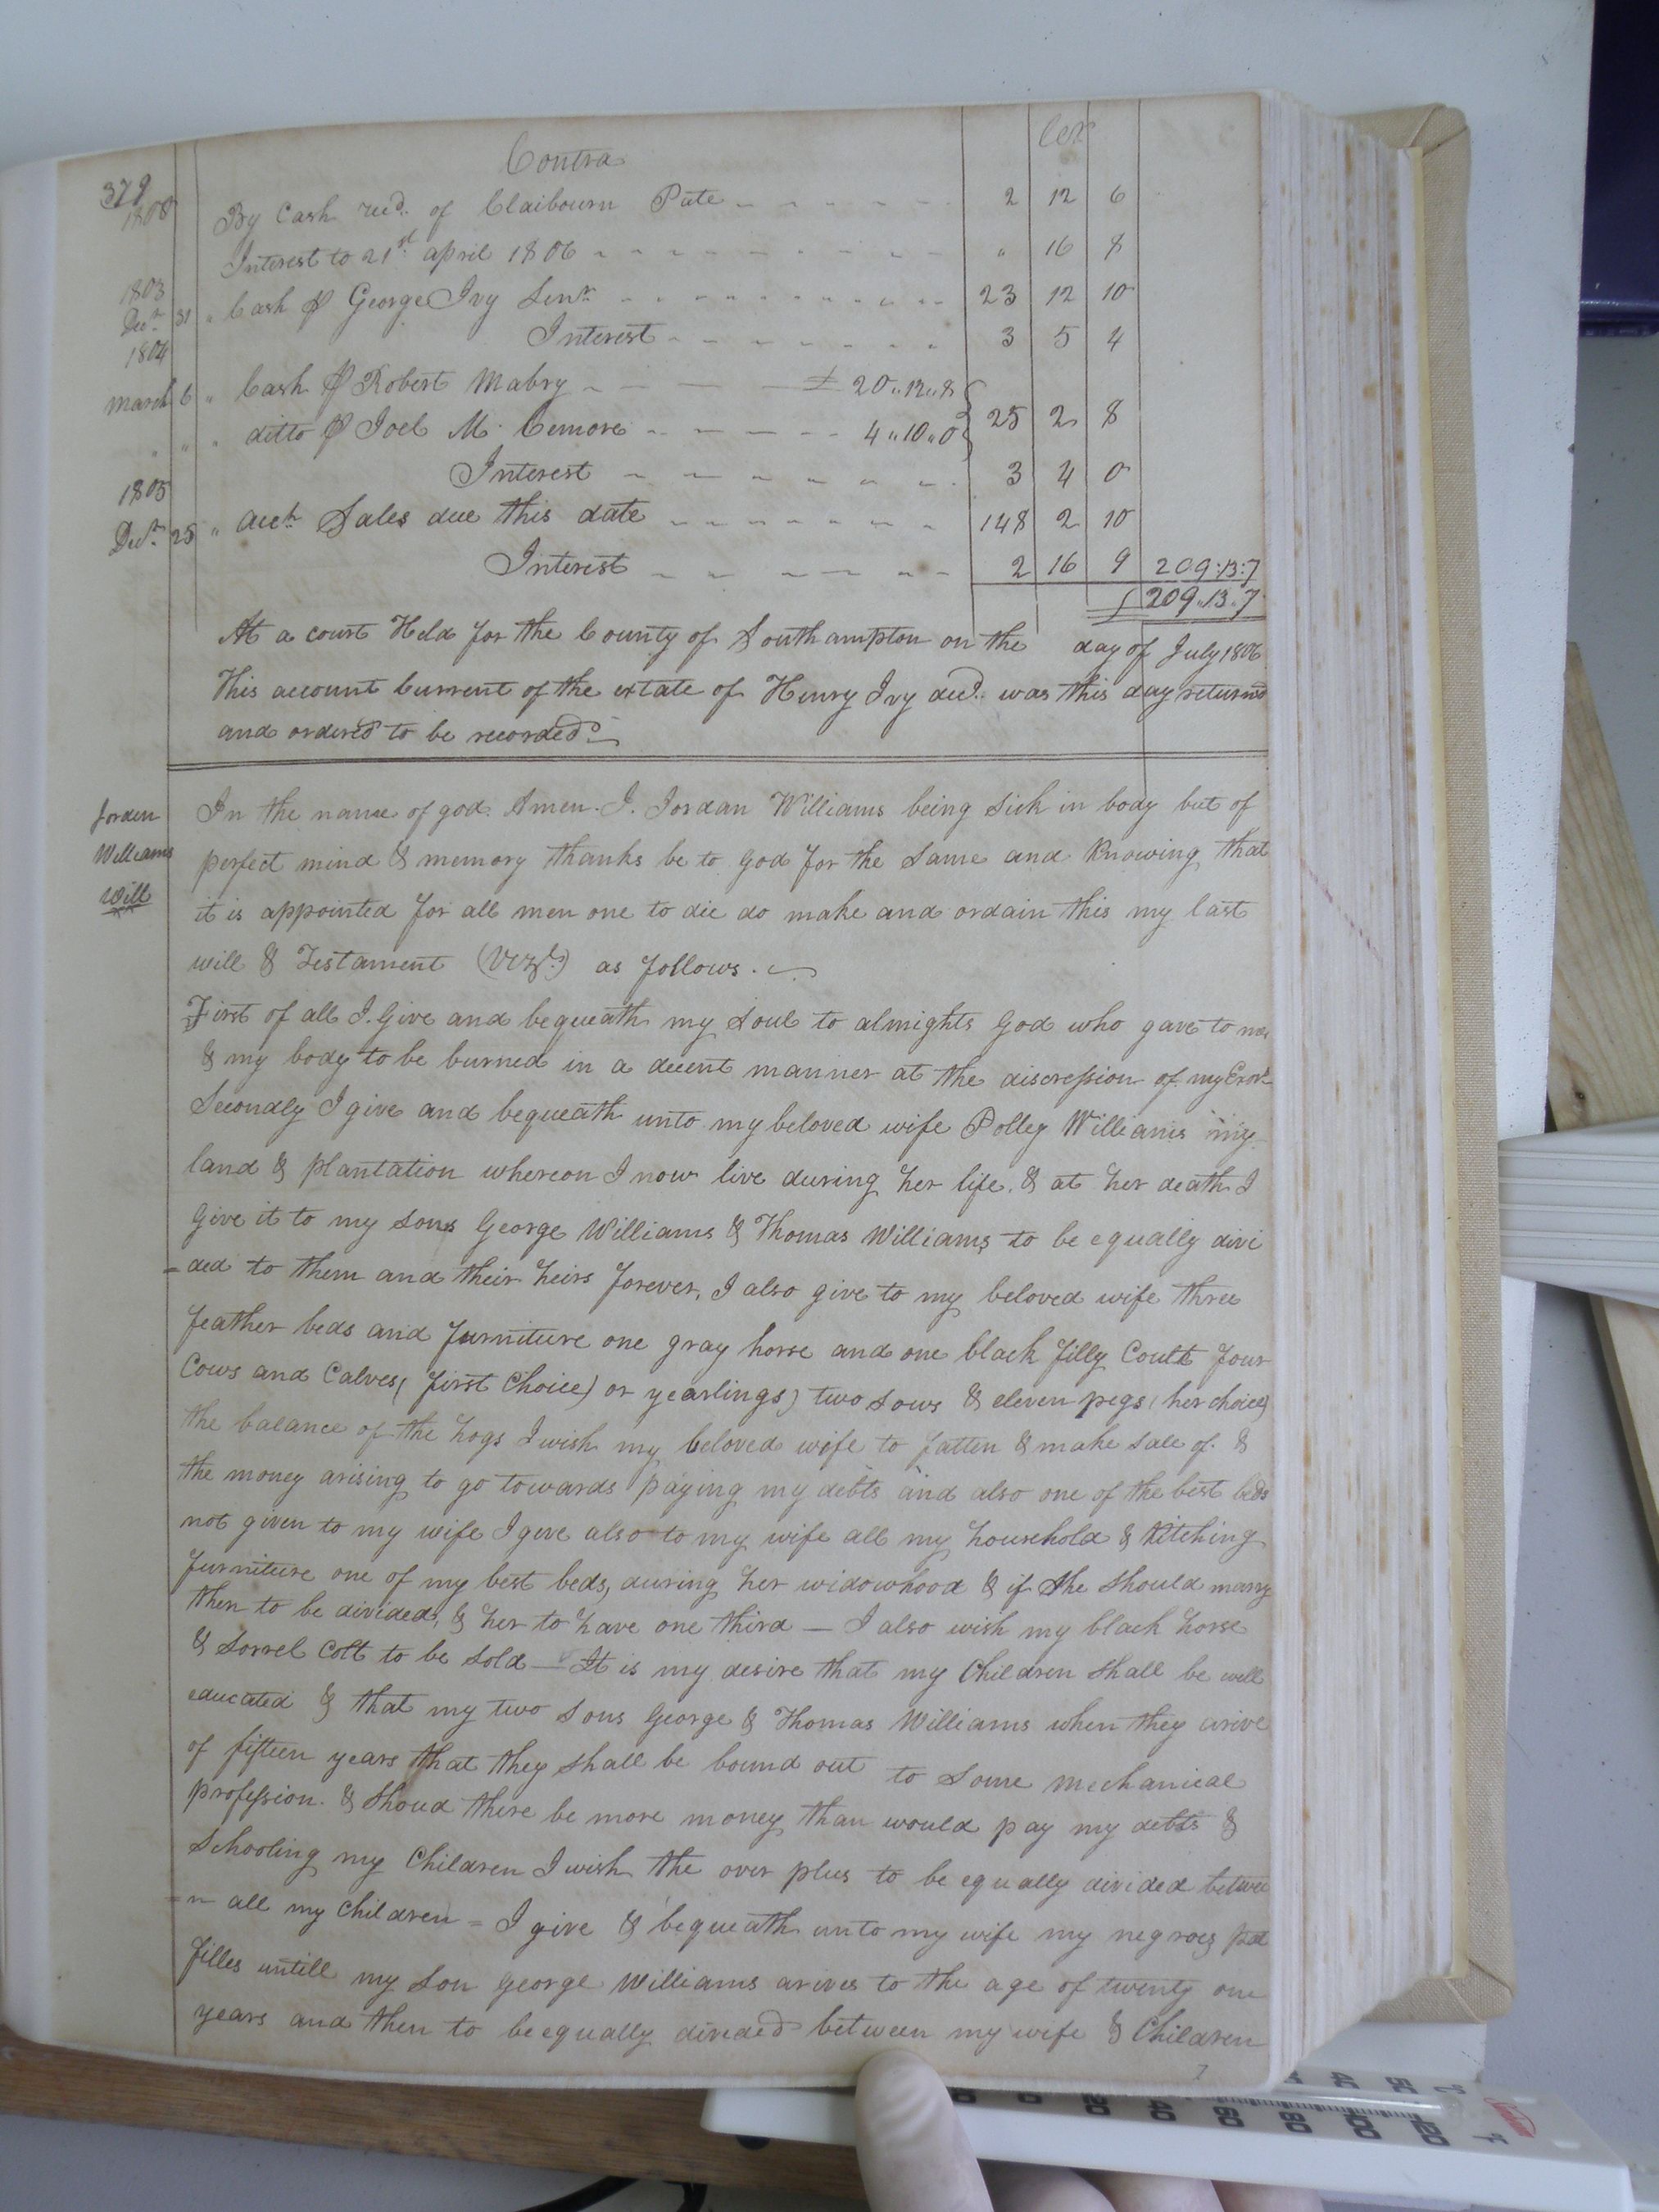 379
Contra Cr
1808 By Cash recd. of Claibourn Pate 2 12 6
Interest to 21st april 1806 " 16 8
1803
Decr. 31 " Cash ⅌ George Ivy Senr. 23 12 10
Interest 3 5 4
1804
March 6 " Cash ⅌ Robert Mabry £ 20,,12,,8
" " ditto ⅌ Joel M. Lemore 4,,10,,0 25 2 8
Interest 3 4 0
1805
Decr. 25 " acct. Sales due this date 148 2 10
Interest 2 16 9 209:13:7
£ 209,,13,,7
At a court Held for the County of Southampton on the day of July 1806
This account Current of the estate of Henry Ivy decd. was this day returnd
and ordered to be recorded
Jorden
Williams
Will
In the name of god. Amen. I. Jordan Williams being sick in body but of
perfect mind & memory thanks be to god for the same and Knowing that
it is appointed for all men one to die do make and ordain this my last
will & Testament (Vizt.) as follows.
First of all I. Give and bequeath my soul to almights God who gave to me
& my body to be burned in a decent manner at the discression of my Exors
Secondly I give and bequeath unto my beloved wife Polley Williams my
land & plantation whereon I now live during her life. & at her death I
Give it to my sons George Williams & Thomas Williams to be equally divi
=ded to them and their heirs forever, I also give to my beloved wife three
feather beds and furniture one gray horse and one black filly Coult four
Cows and Calves( first Choice) or yearlings) two sows & eleven pigs (her choice)
the balance of the hogs I wish my beloved wife to fatten & make sale of. &
the money arising to go towards paying my debts and also one of the best beds
not given to my wife I give also to my wife all my household & Kitching
furniture one of my best beds, during her widowhood & if she should marry
then to be divided, & her to have one third — I also wish my black horse
& Sorrel Colt to be sold — It is my desire that my Children shall be well
educated & that my two sons George & Thomas Williams when they arive
of fifteen years that they shall be bound out to some mechanical
profession. & shoud there be more money than would pay my debts &
Schooling my Children I wish the over plus to be equally divided betwee
=n all my Children = I give & bequeath unto my wife my negroes
filles untill my son George Williams arives to the age of twenty one
years and then to be equally divided between my wife & Children